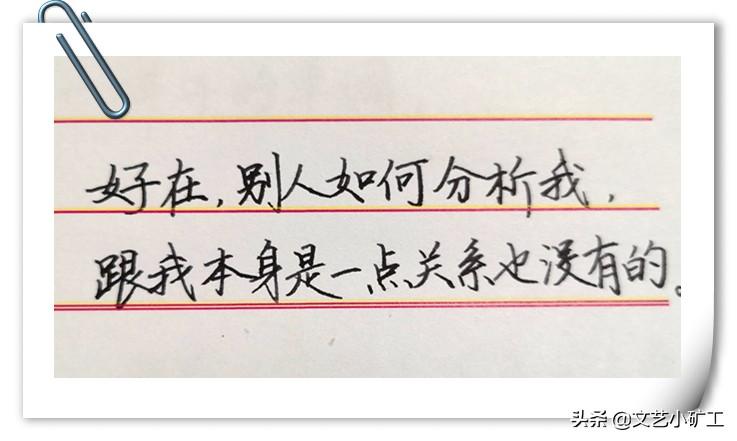 好在,别人如何分析我,
跟我本身是一点关系也没有的。
头条 @文艺小矿工